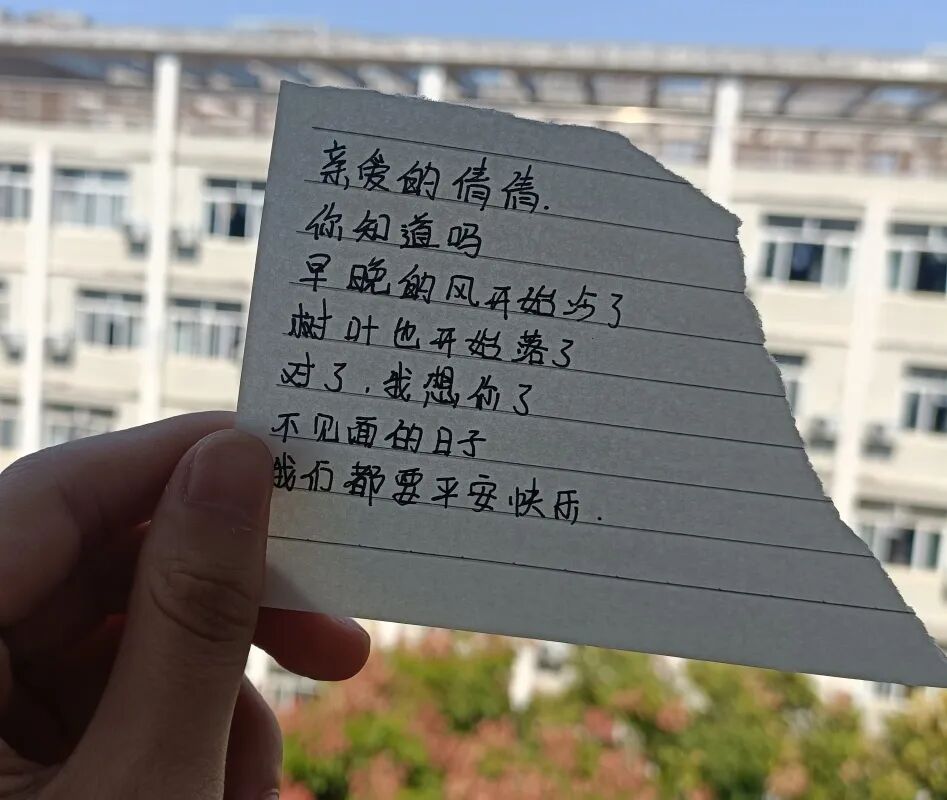 亲爱的倩倩.
你知道吗
早晚的风开始步了
树叶也开始落了
对了,我想你了
不见面的日子
我们都要平安快乐.